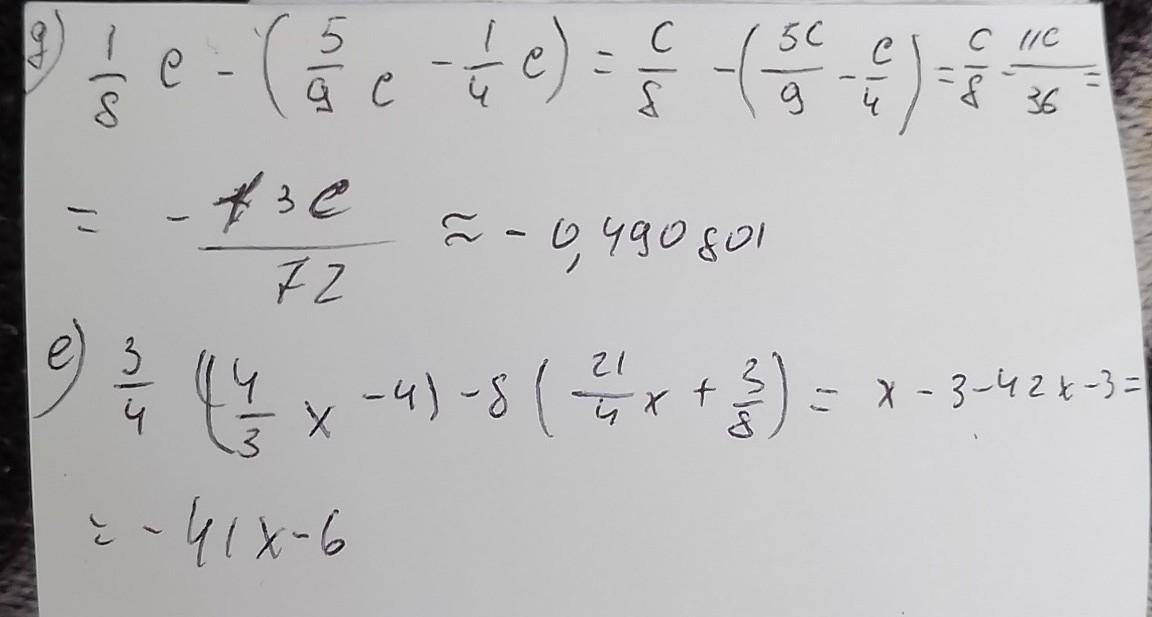 g) 1/8 c - (5/9 c - 1/4 c) = c/8 - (5c/9 - c/4) = c/8 - 11c/36 =
= - 13c/72 ≈ - 0,490801
e) 3/4 (4/3 x - 4) - 8 (21/4 x + 3/8) = x - 3 - 42x - 3 =
= - 41x - 6